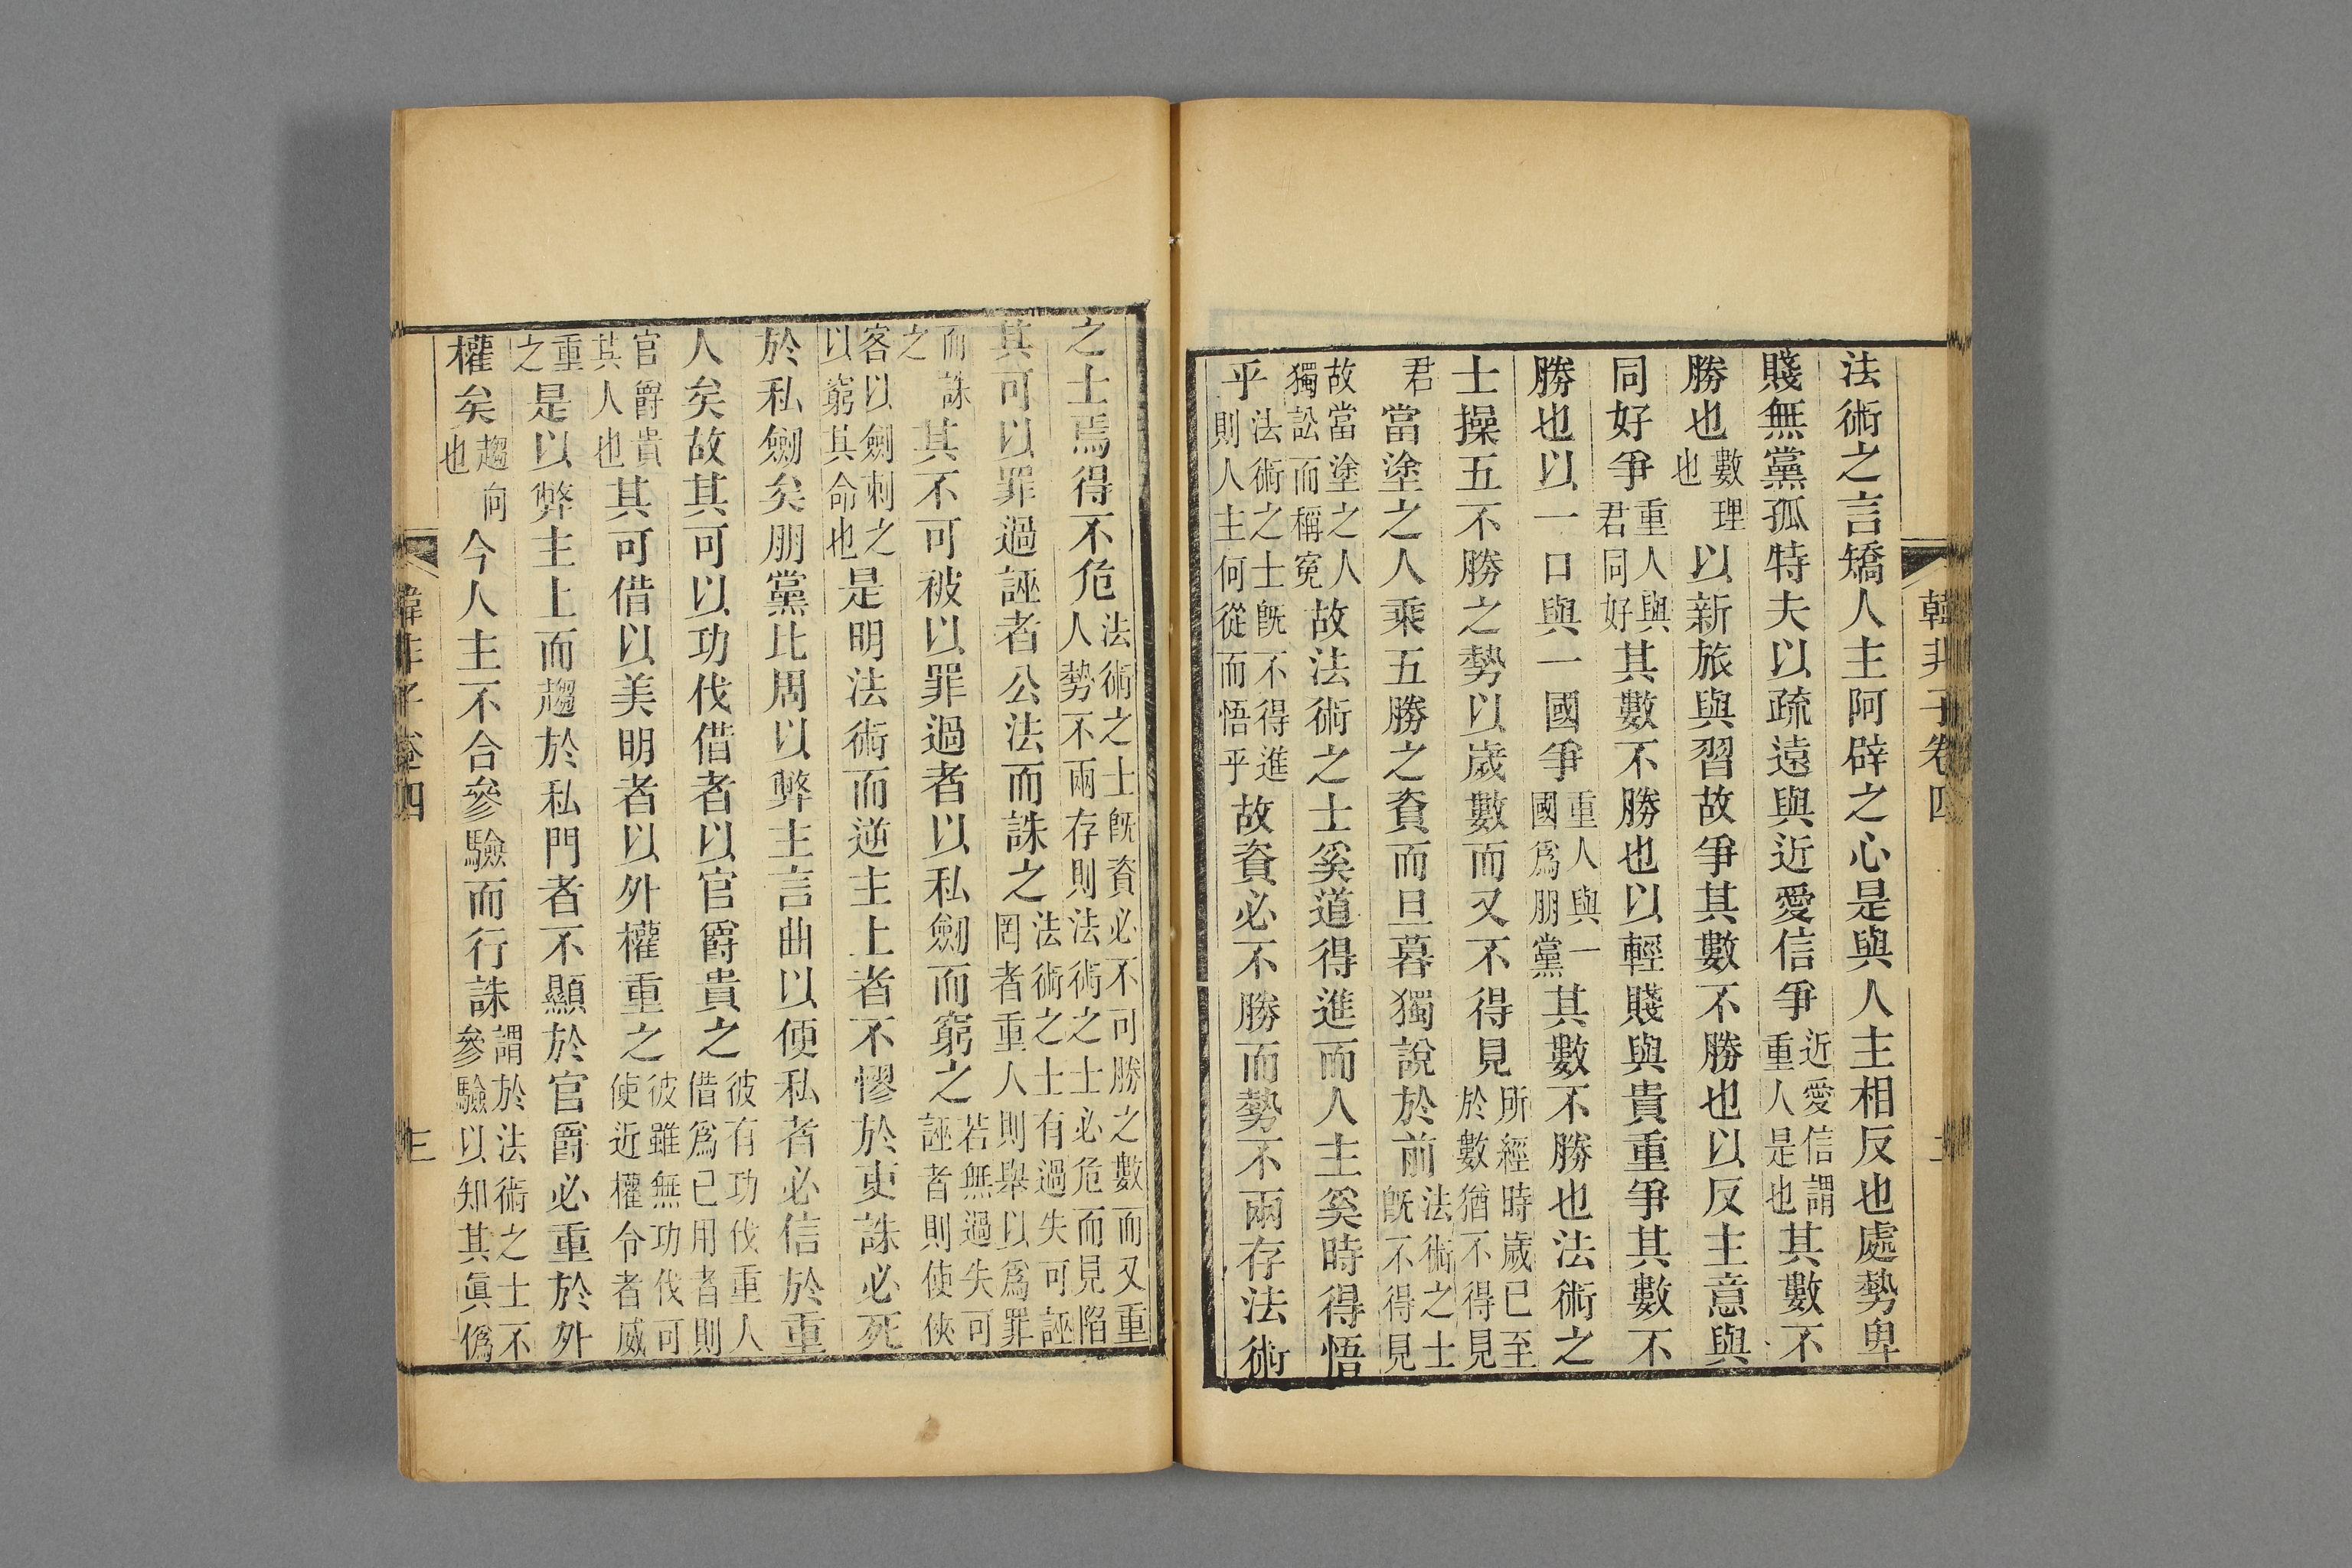 韓非子卷四
法術之言矯人主阿辟之心是與人主相反也處勢卑
賤無黨孤特夫以疏遠與近愛信爭近愛信謂重人是也其數不
勝也數理也以新旅與習故爭其數不勝也以反主意與
同好爭重人與君同好其數不勝也以輕賤與貴重爭其數不
勝也以一口與一國爭重人與一國爲朋黨其數不勝也法術之
士操五不勝之勢以歲數而又不得見所經時歲已至於數猶不得見
君當塗之人乘五勝之資而旦暮獨說於前法術之士旣不得見
故當塗之人獨訟而稱冤故法術之士奚道得進而人主奚時得悟
乎法術之士旣不得進則人主何從而悟乎故資必不勝而勢不兩存法術
之士焉得不危法術之士旣資必不可勝之數而又重人勢不兩存則法術之士必危而見陷
其可以罪過誣者公法而誅之法術之士有過失可誣罔者重人則舉以爲罪
而誅之其不可被以罪過者以私劍而窮之若無過失可誣者則使俠
客以劍刺之以窮其命也是明法術而逆主上者不僇於吏誅必死
於私劍矣朋黨比周以弊主言曲以便私者必信於重
人矣故其可以功伐借者以官爵貴之彼有功伐重人借爲已用者則
官爵貴其人也其可借以美明者以外權重之彼雖無功伐可使近權令者威
重之是以弊主上而趨於私門者不顯於官爵必重於外
權矣趨向也今人主不合參驗而行誅謂於法術之士不參驗以知其眞僞
韓非子卷四
三